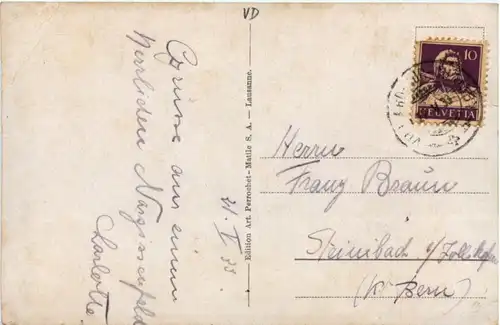 VD
Grüsse aus einem
herrlichen Narzissenfeld
Charlotte.
31. V 33.
Edition Art. Perrochet-Matile S. A. — Lausanne.
10
HELVETIA
Herrn
Franz Braun
Steinibach b/Zollikofen
(Kt Bern)